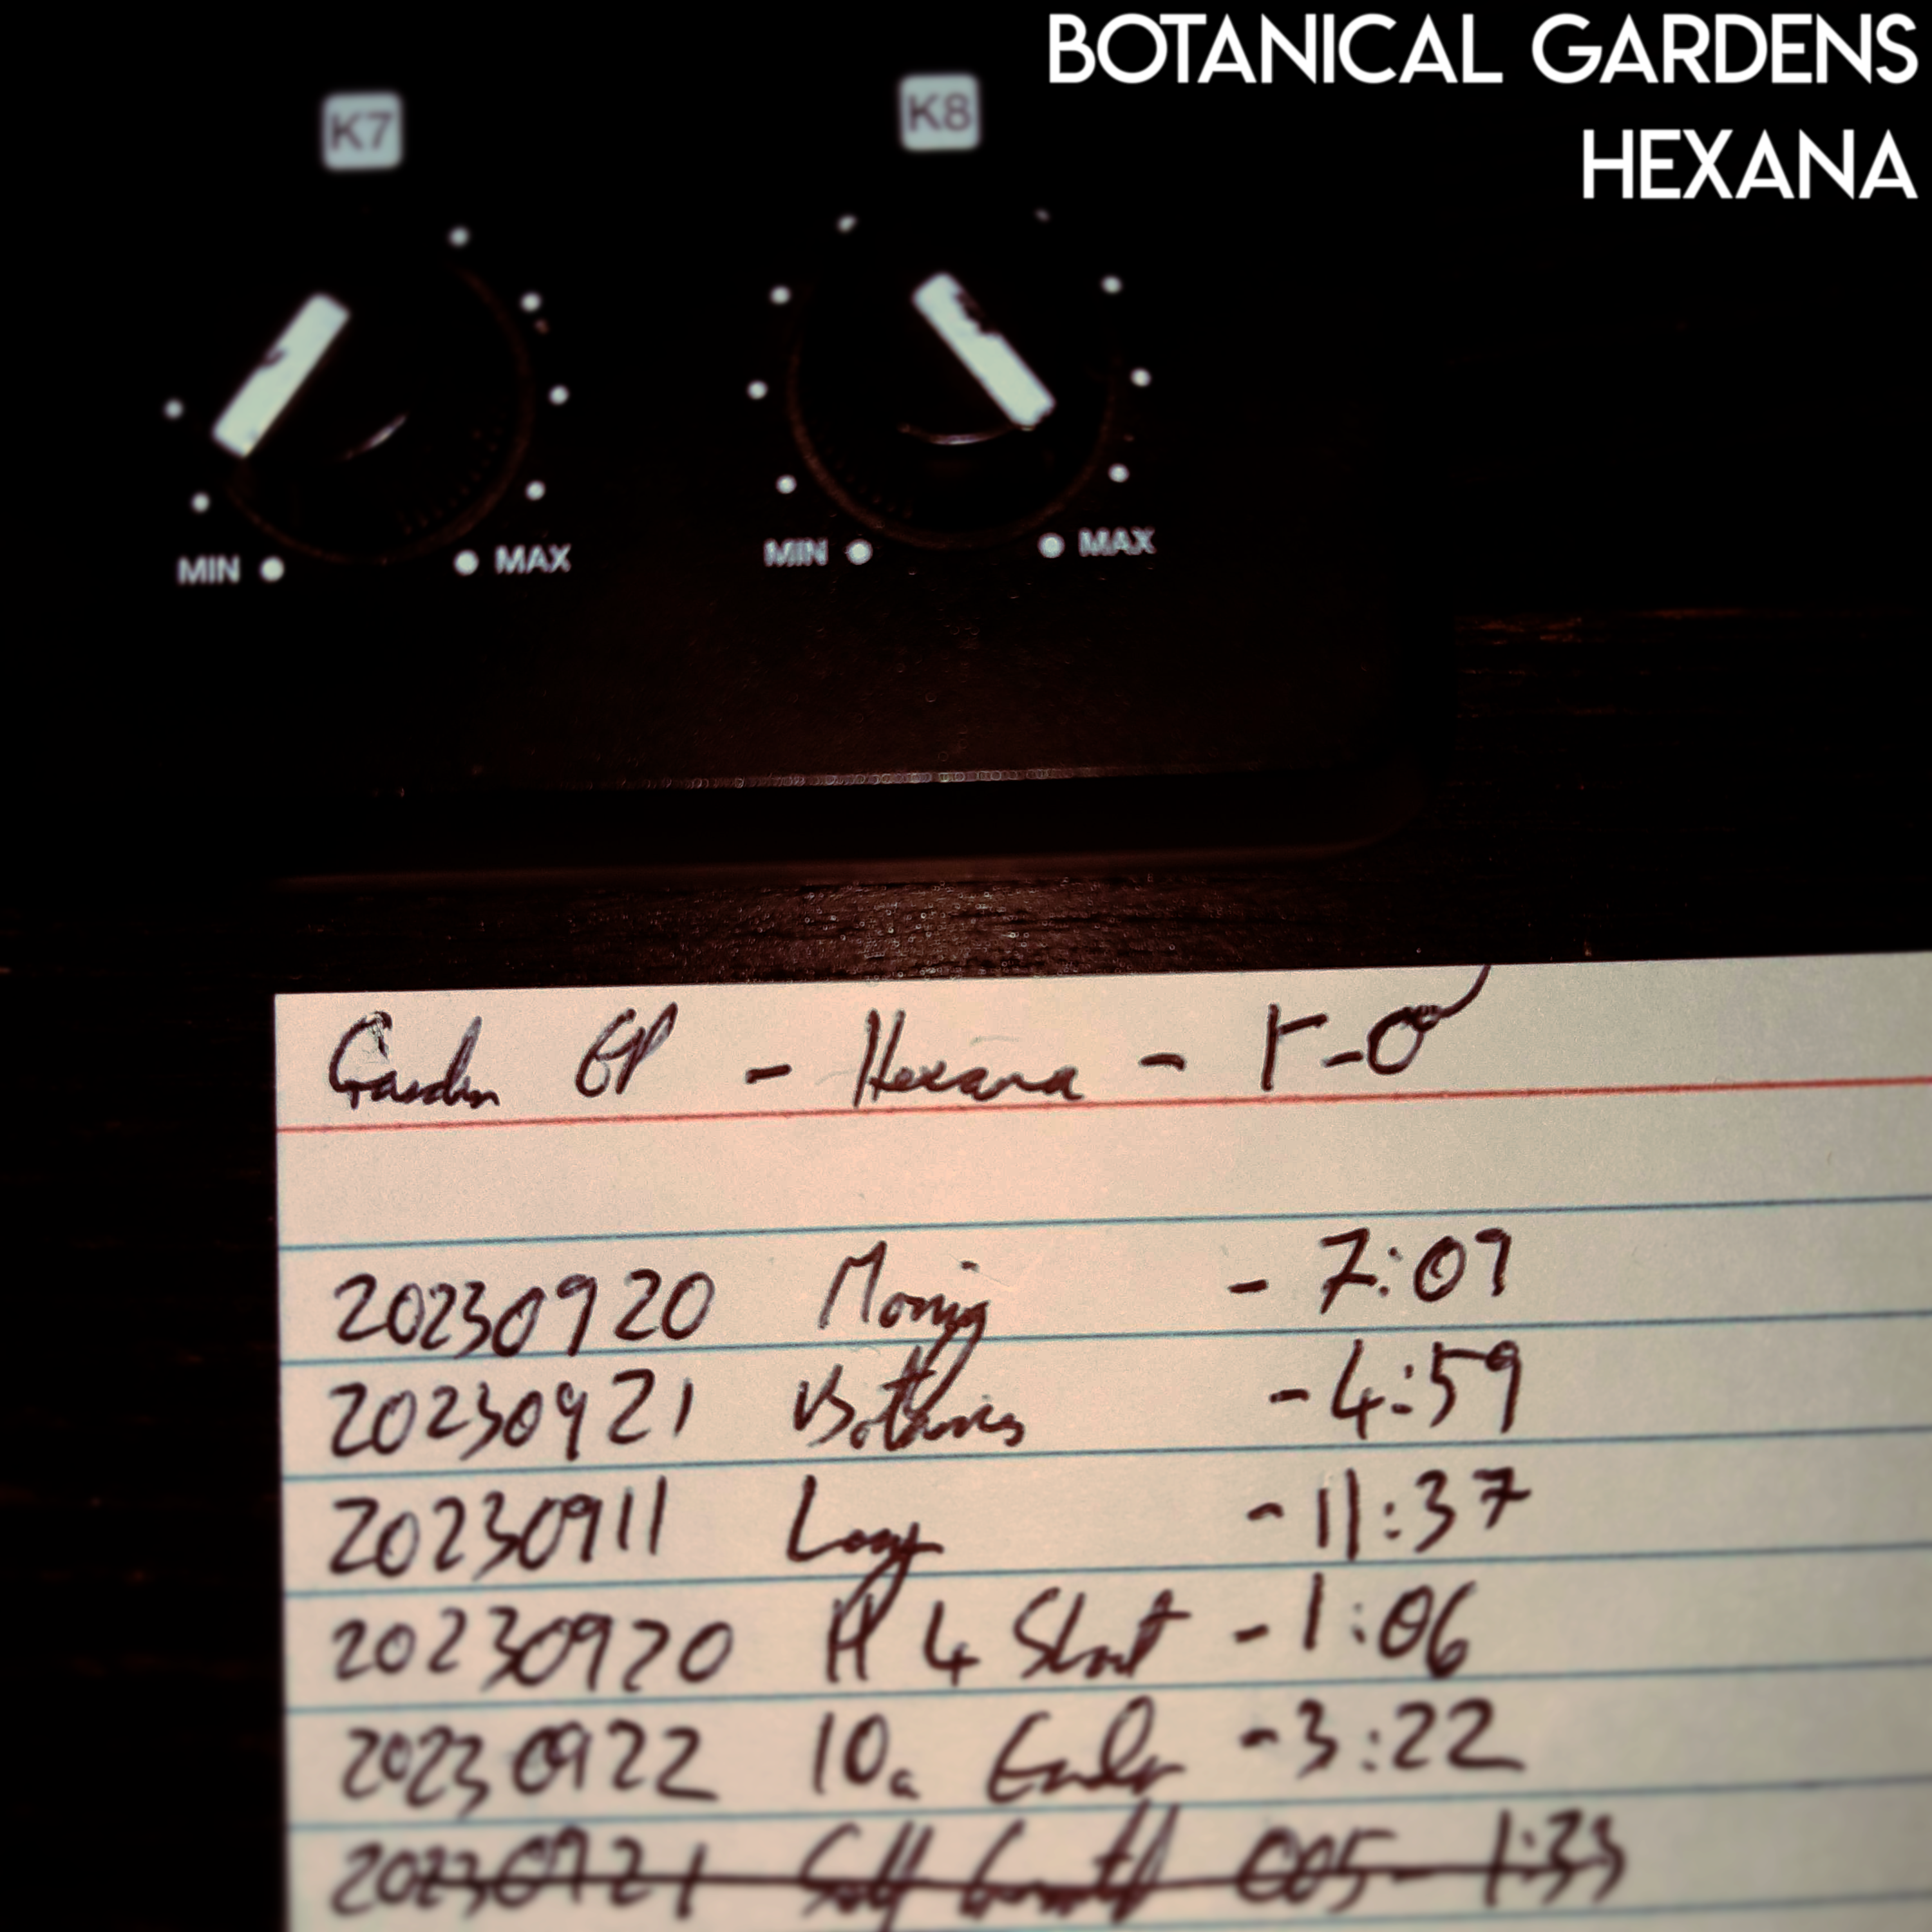 BOTANICAL GARDENS
HEXANA
K7 K8
MIN MAX MIN MAX
Garden EP - Hexana -
20230920 Mornig - 7:09
20230921 - 4:59
20230911 - 11:37
20230920 H 4 Short - 1:06
20230922 10a - 3:22
20230921 005 - 1:33